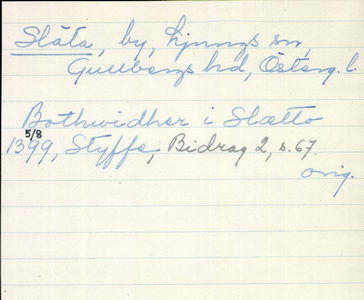 Slåta, by, Ljungs sn,
Gullbergs hd, Österg. l.
Bothwidher i Slætto
5/8
1399, Styffe, Bidrag 2, s. 67.
orig.